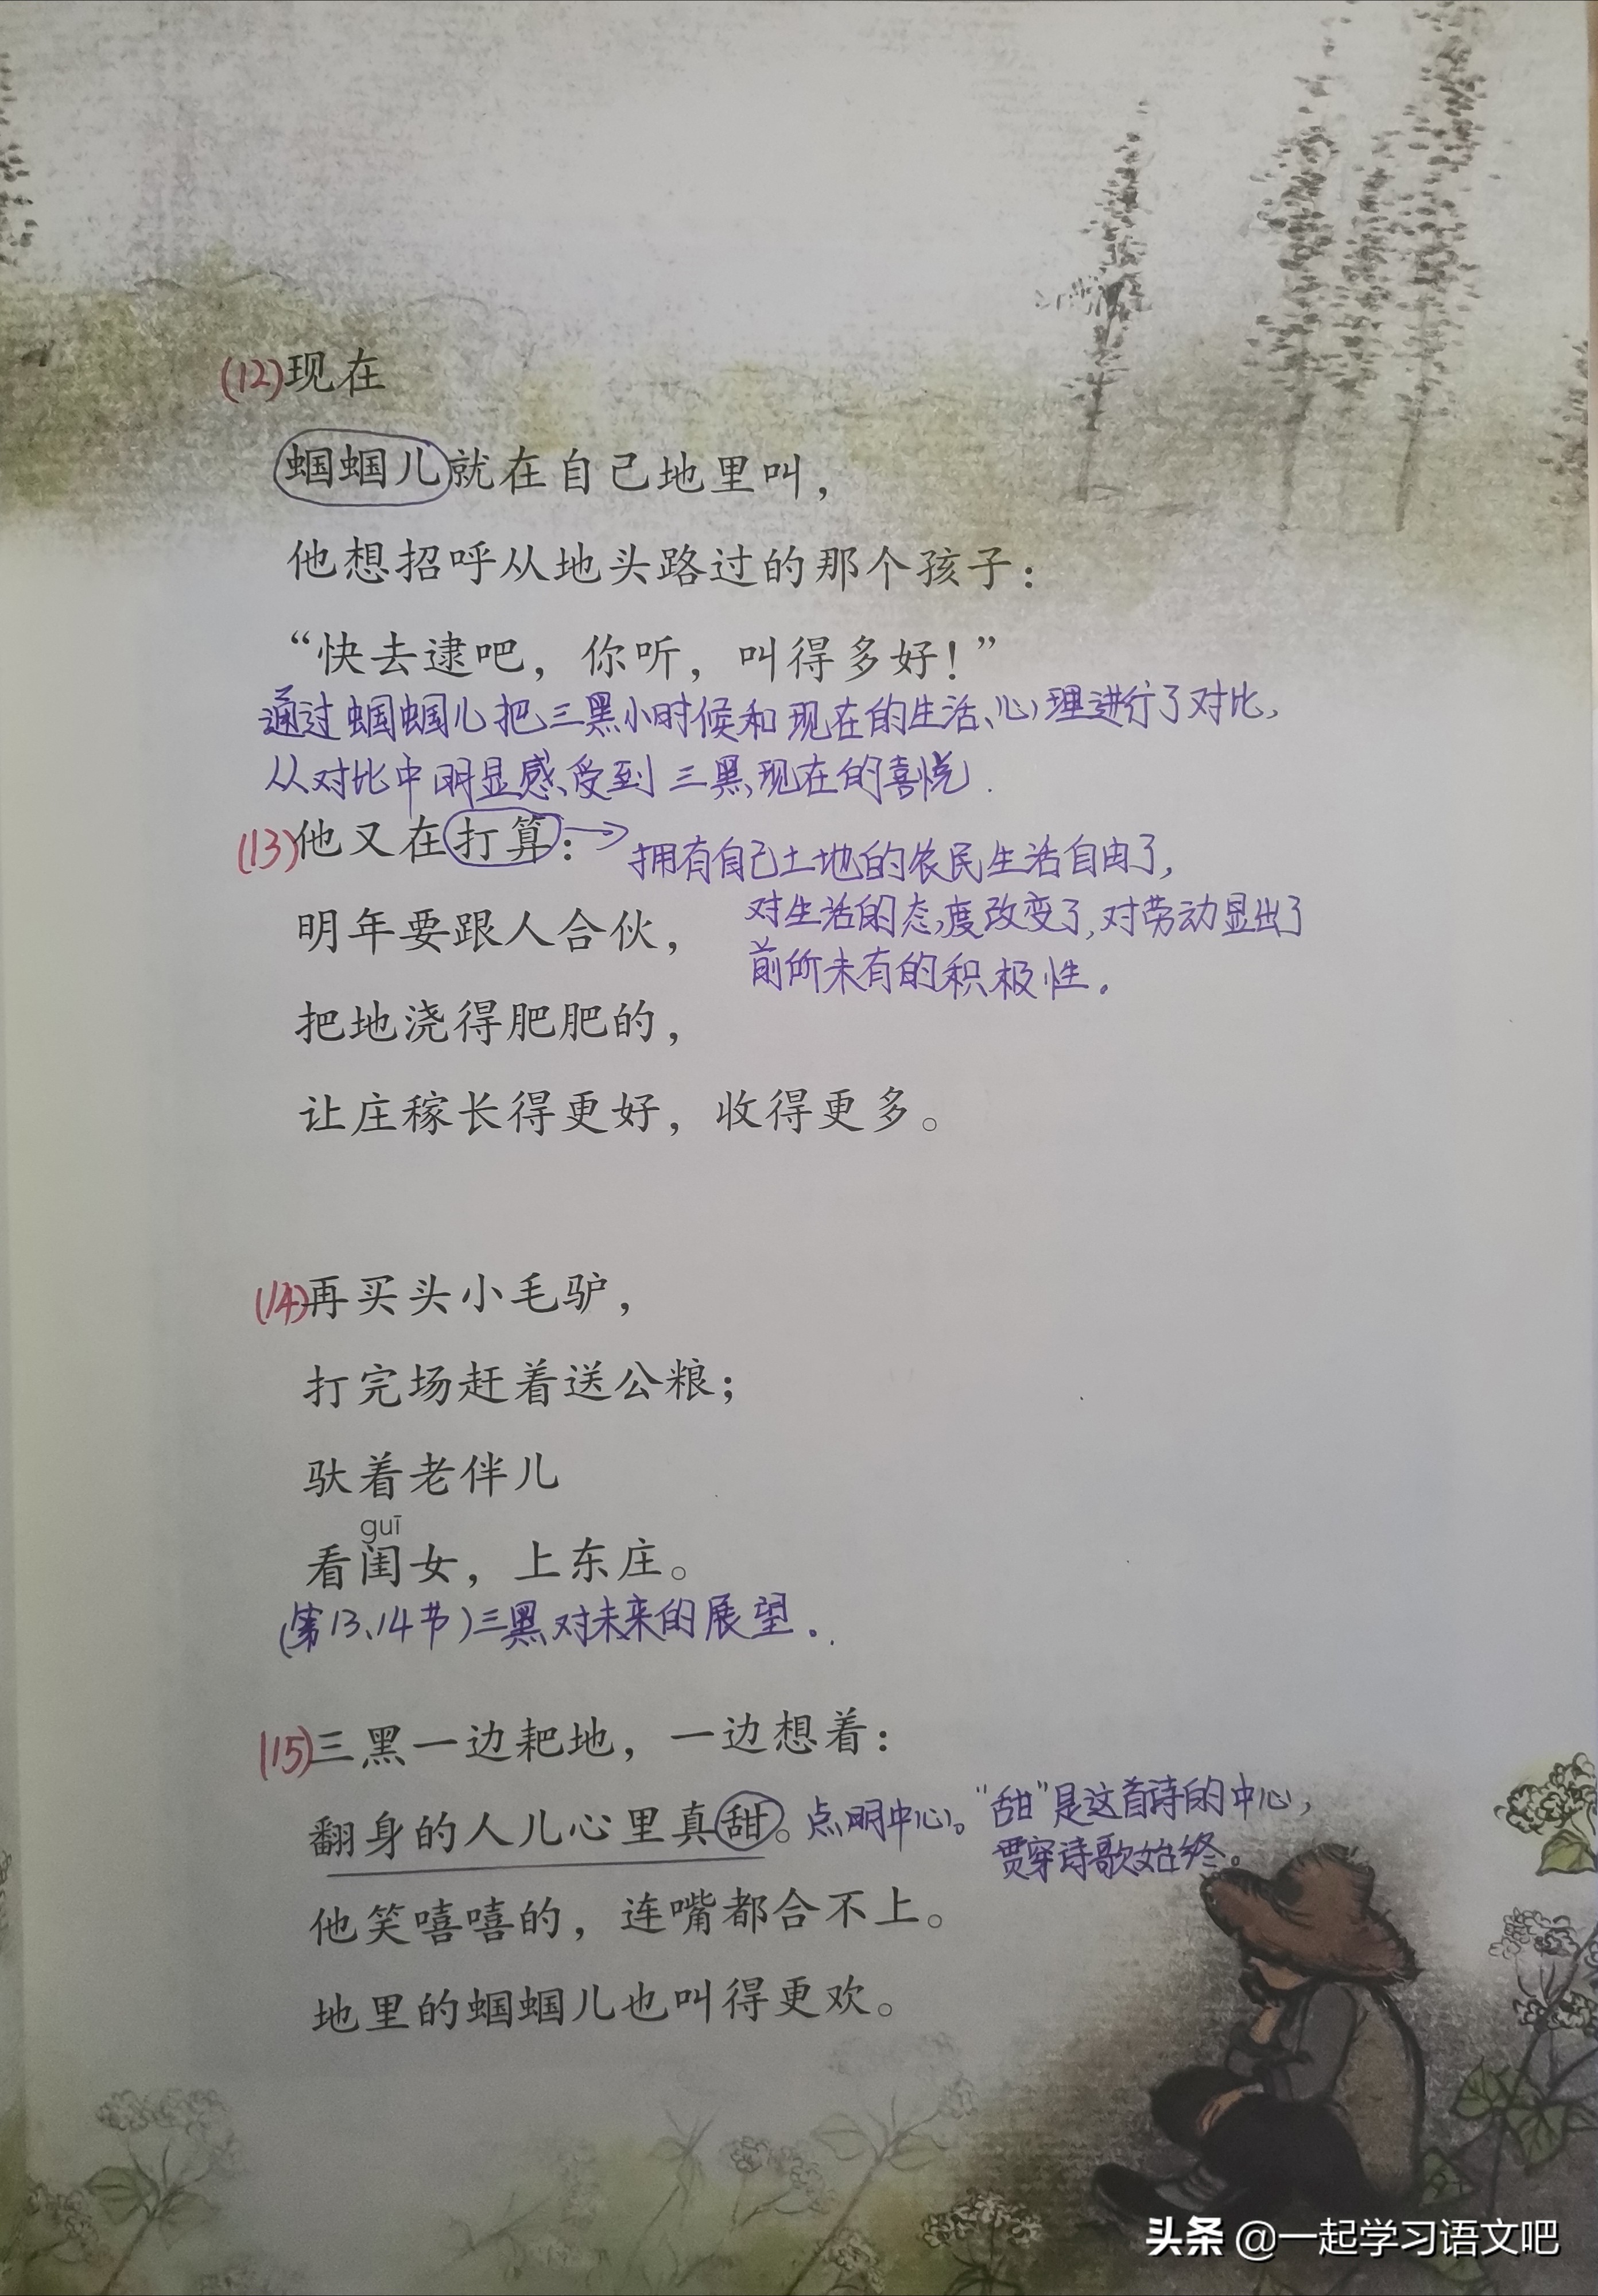 (12)现在
蝈蝈儿就在自己地里叫，
他想招呼从地头路过的那个孩子：
“快去逮吧，你听，叫得多好！”
通过蝈蝈儿把三黑小时候和现在的生活、心理进行了对比，
从对比中明显感受到三黑现在的喜悦.
(13)他又在打算：→拥有自己土地的农民生活自由了，
对生活的态度改变了，对劳动显出了
明年要跟人合伙，
前所未有的积极性。
把地浇得肥肥的，
让庄稼长得更好，收得更多。
(14)再买头小毛驴，
打完场赶着送公粮；
驮着老伴儿
guī
看闺女，上东庄。
(第13、14节)三黑对未来的展望。
(15)三黑一边耙地，一边想着：
翻身的人儿心里真甜。点明中心。“甜”是这首诗的中心，
贯穿诗歌始终。
他笑嘻嘻的，连嘴都合不上。
地里的蝈蝈儿也叫得更欢。
头条 @一起学习语文吧